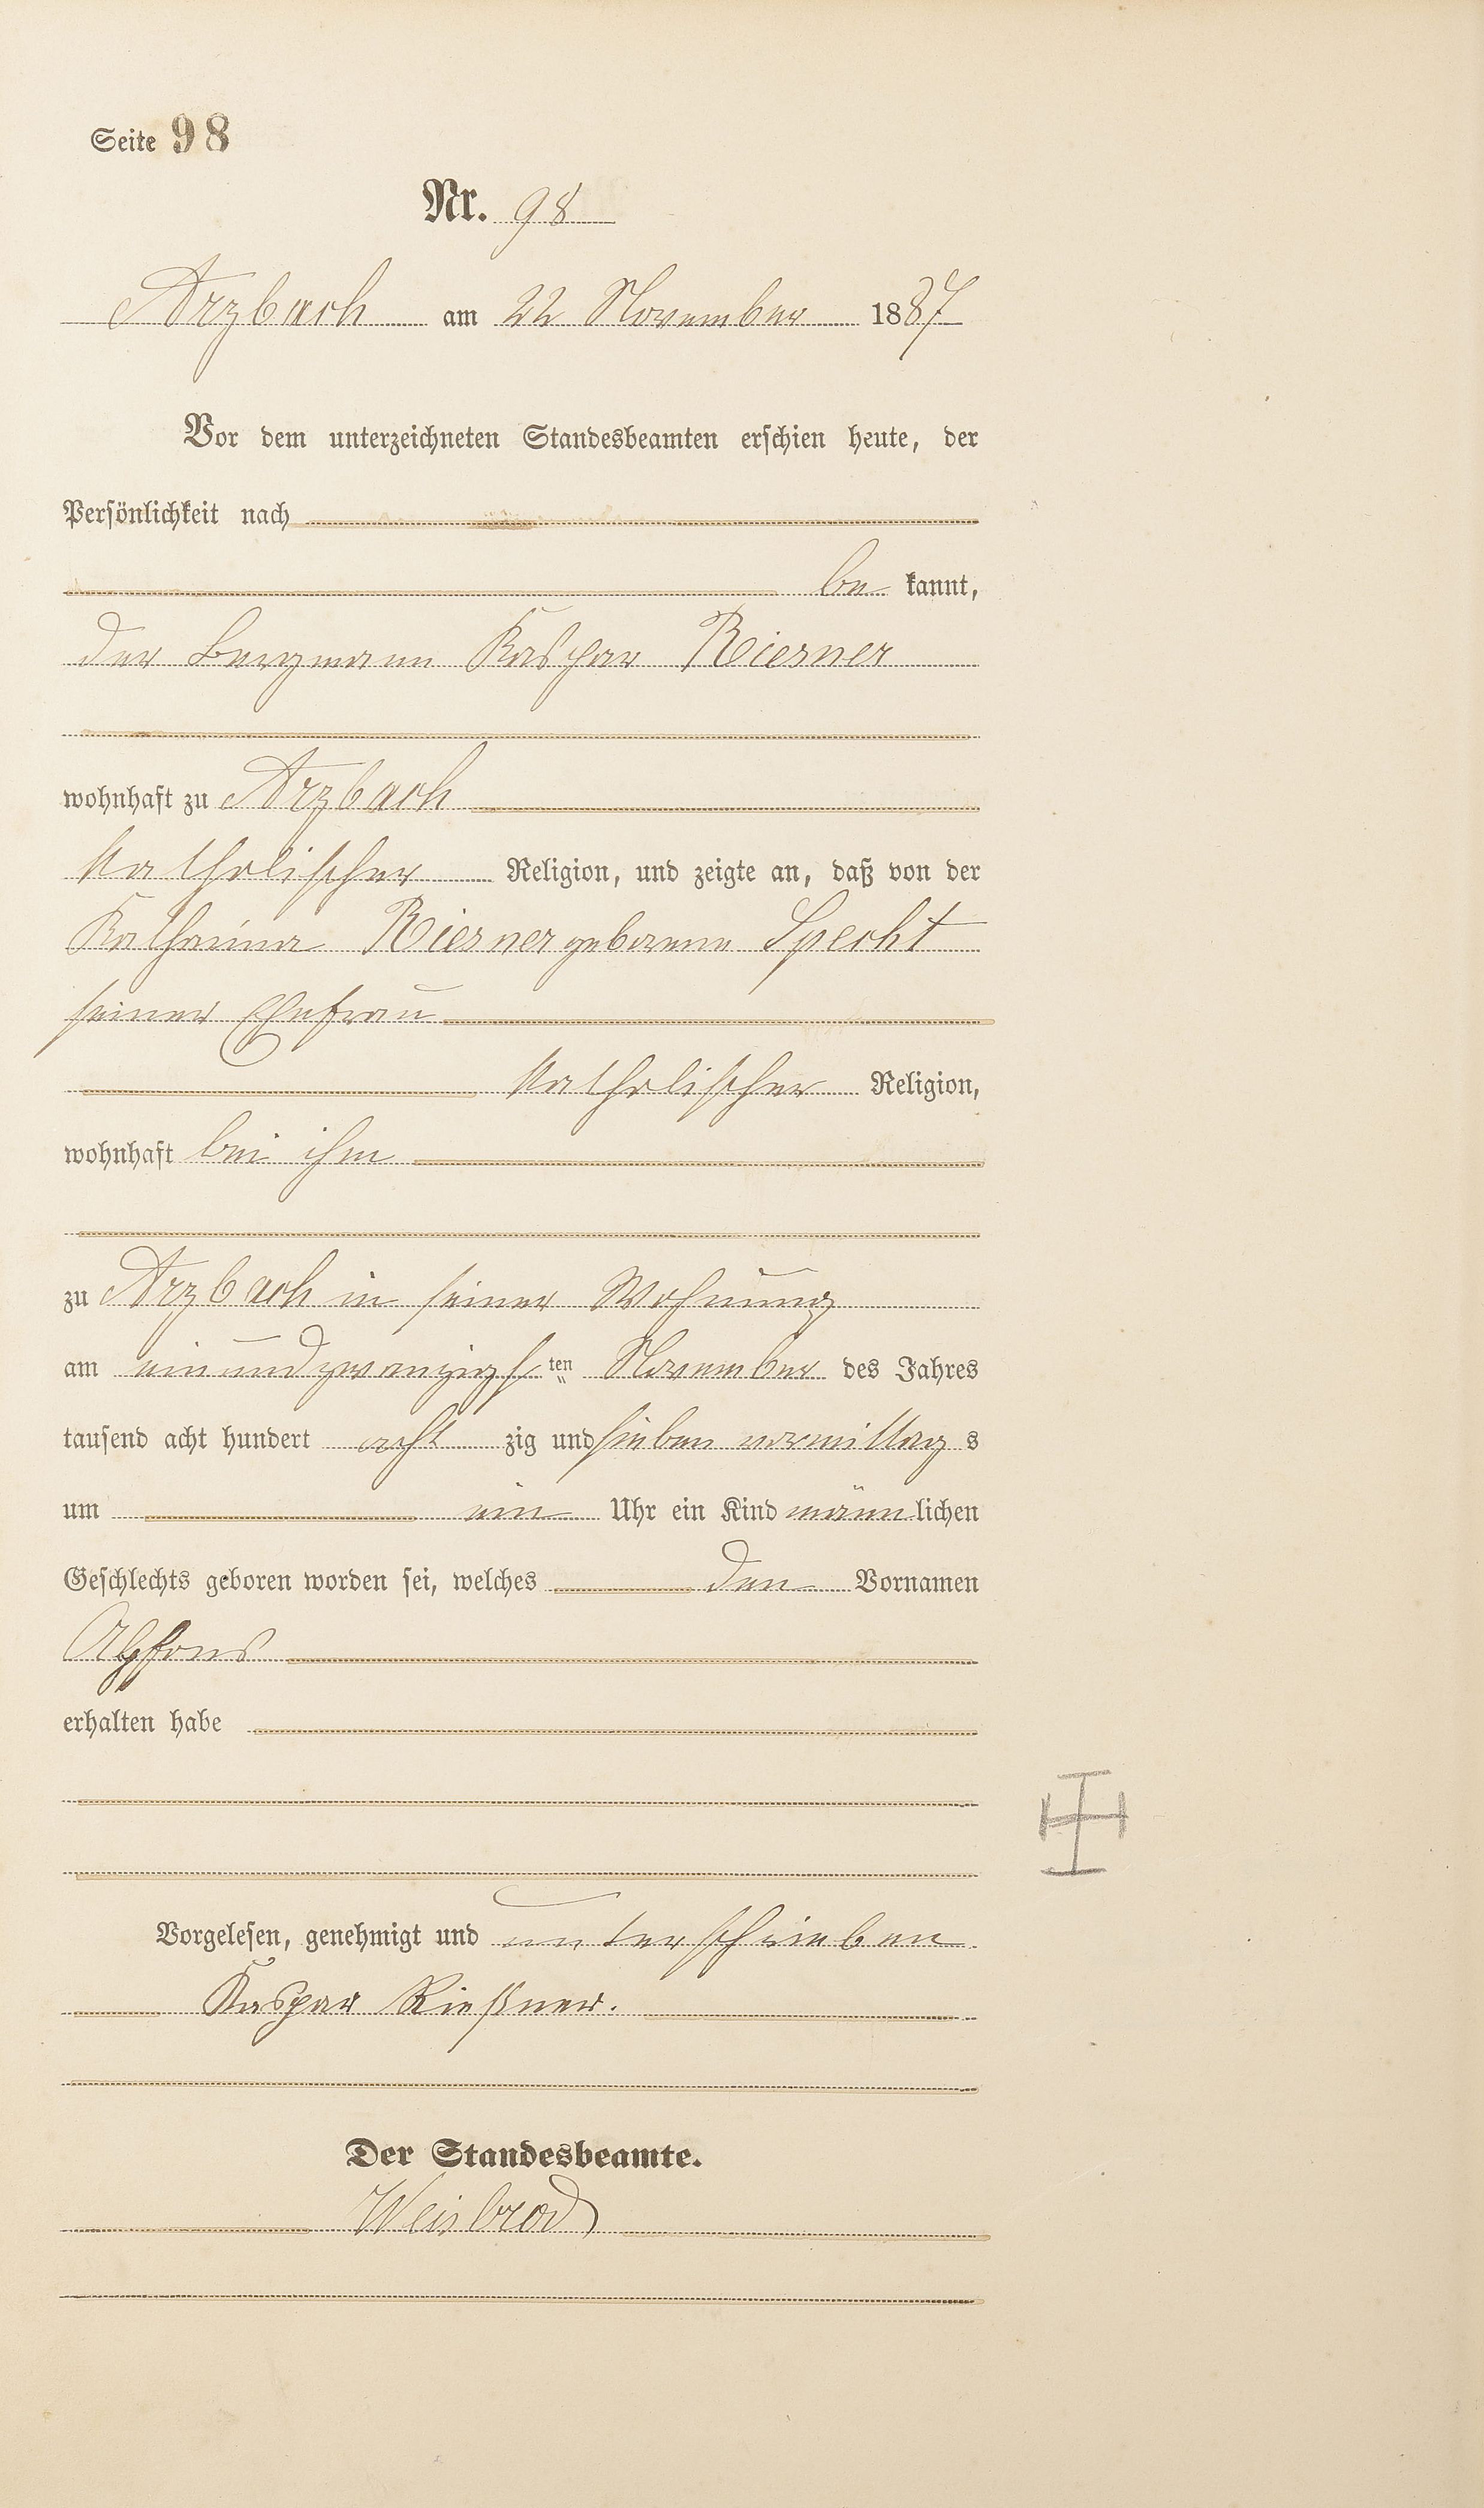 Seite 98
Nr. 98
Arzbach am 22 November 1887
Vor dem unterzeichneten Standesbeamten erschien heute, der
Persönlichkeit nach
be kannt,
der Bergmann Kaspar Riesner
wohnhaft zu Arzbach
katholischer Religion, und zeigte an, daß von der
Katharina Riesner geborene Specht
seiner Ehefrau
katholischer Religion,
wohnhaft bei ihm
zu Arzbach in seiner Wohnung
am einundzwanzigsten November des Jahres
tausend acht hundert acht zig und sieben vormittags
um ein Uhr ein Kind männlichen
Geschlechts geboren worden sei, welches den Vornamen
Alfons
erhalten habe
Vorgelesen, genehmigt und unterschrieben
Kaspar Rießner.
Der Standesbeamte.
Weisbrod